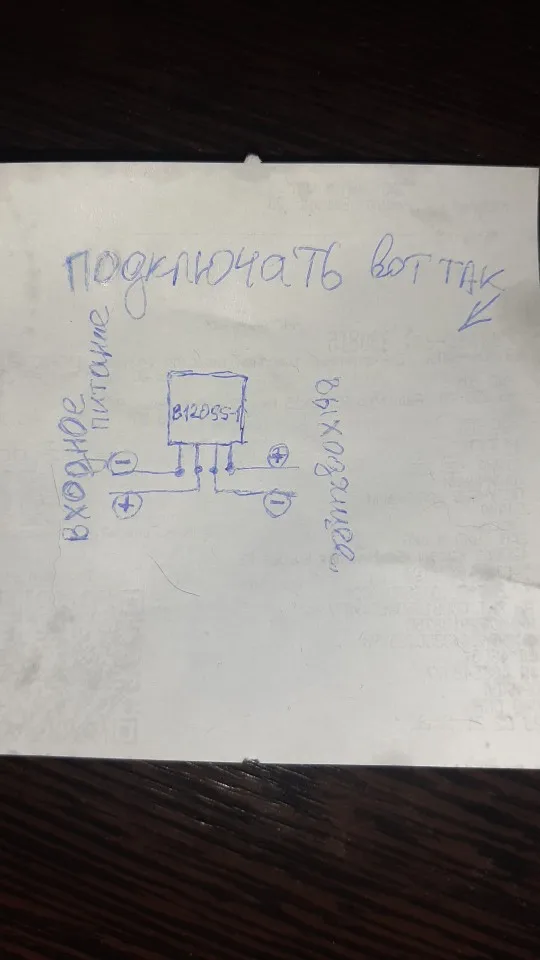 подключать вот так
входное
питание
B1205S-1
−
+
+
−
выходящее